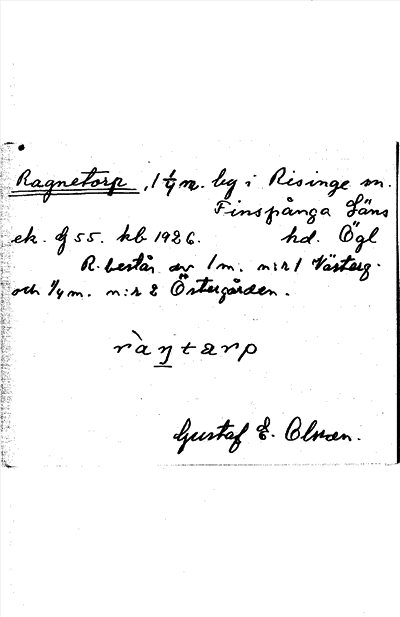 Ragnetorp, 1 1/4 m. by i Risinge sn.
Finspånga Läns
ek. bl 55. kb 1926. hd. Ögl
R. består av 1 m. n:r 1 Västerg.
och 1/4 m. n:r 2 Östergården.
ràŋtarp
Gustaf E. Olsson.